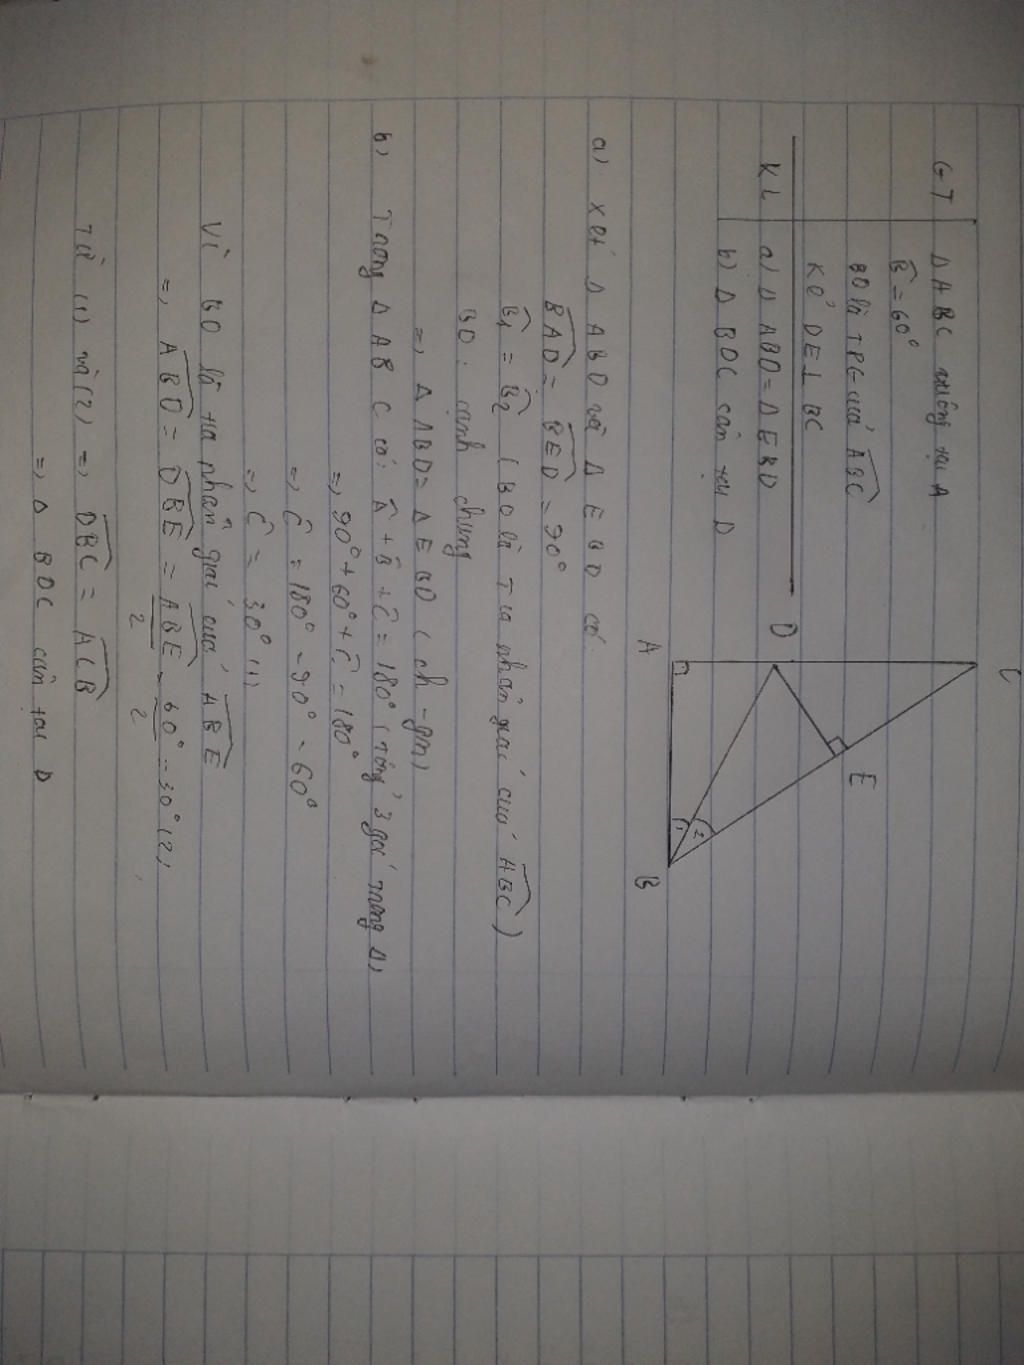 GT ΔABC vuông tại A
B̂ = 60°
BD là TPG của ABC
Kẻ DE ⊥ BC
KL a) ΔABD = ΔEBD
b) ΔBDC cân tại D
C
D
E
A
B
1
2
a) Xét ΔABD và ΔEBD có
BAD = BED = 90°
B̂1 = B̂2 (BD là Tia phân giác của ABC)
BD: cạnh chung
=> ΔABD = ΔEBD (ch-gn)
b) Trong ΔABC có: Â + B̂ + Ĉ = 180° (tổng 3 góc trong Δ)
=> 90° + 60° + Ĉ = 180°
=> Ĉ = 180° - 90° - 60°
=> Ĉ = 30° (1)
Vì BD là tia phân giác của ABE
=> ABD = DBE = ABE/2 - 60°/2 = 30° (2)
Từ (1) và (2) => DBC = ACB
=> ΔBDC cân tại D